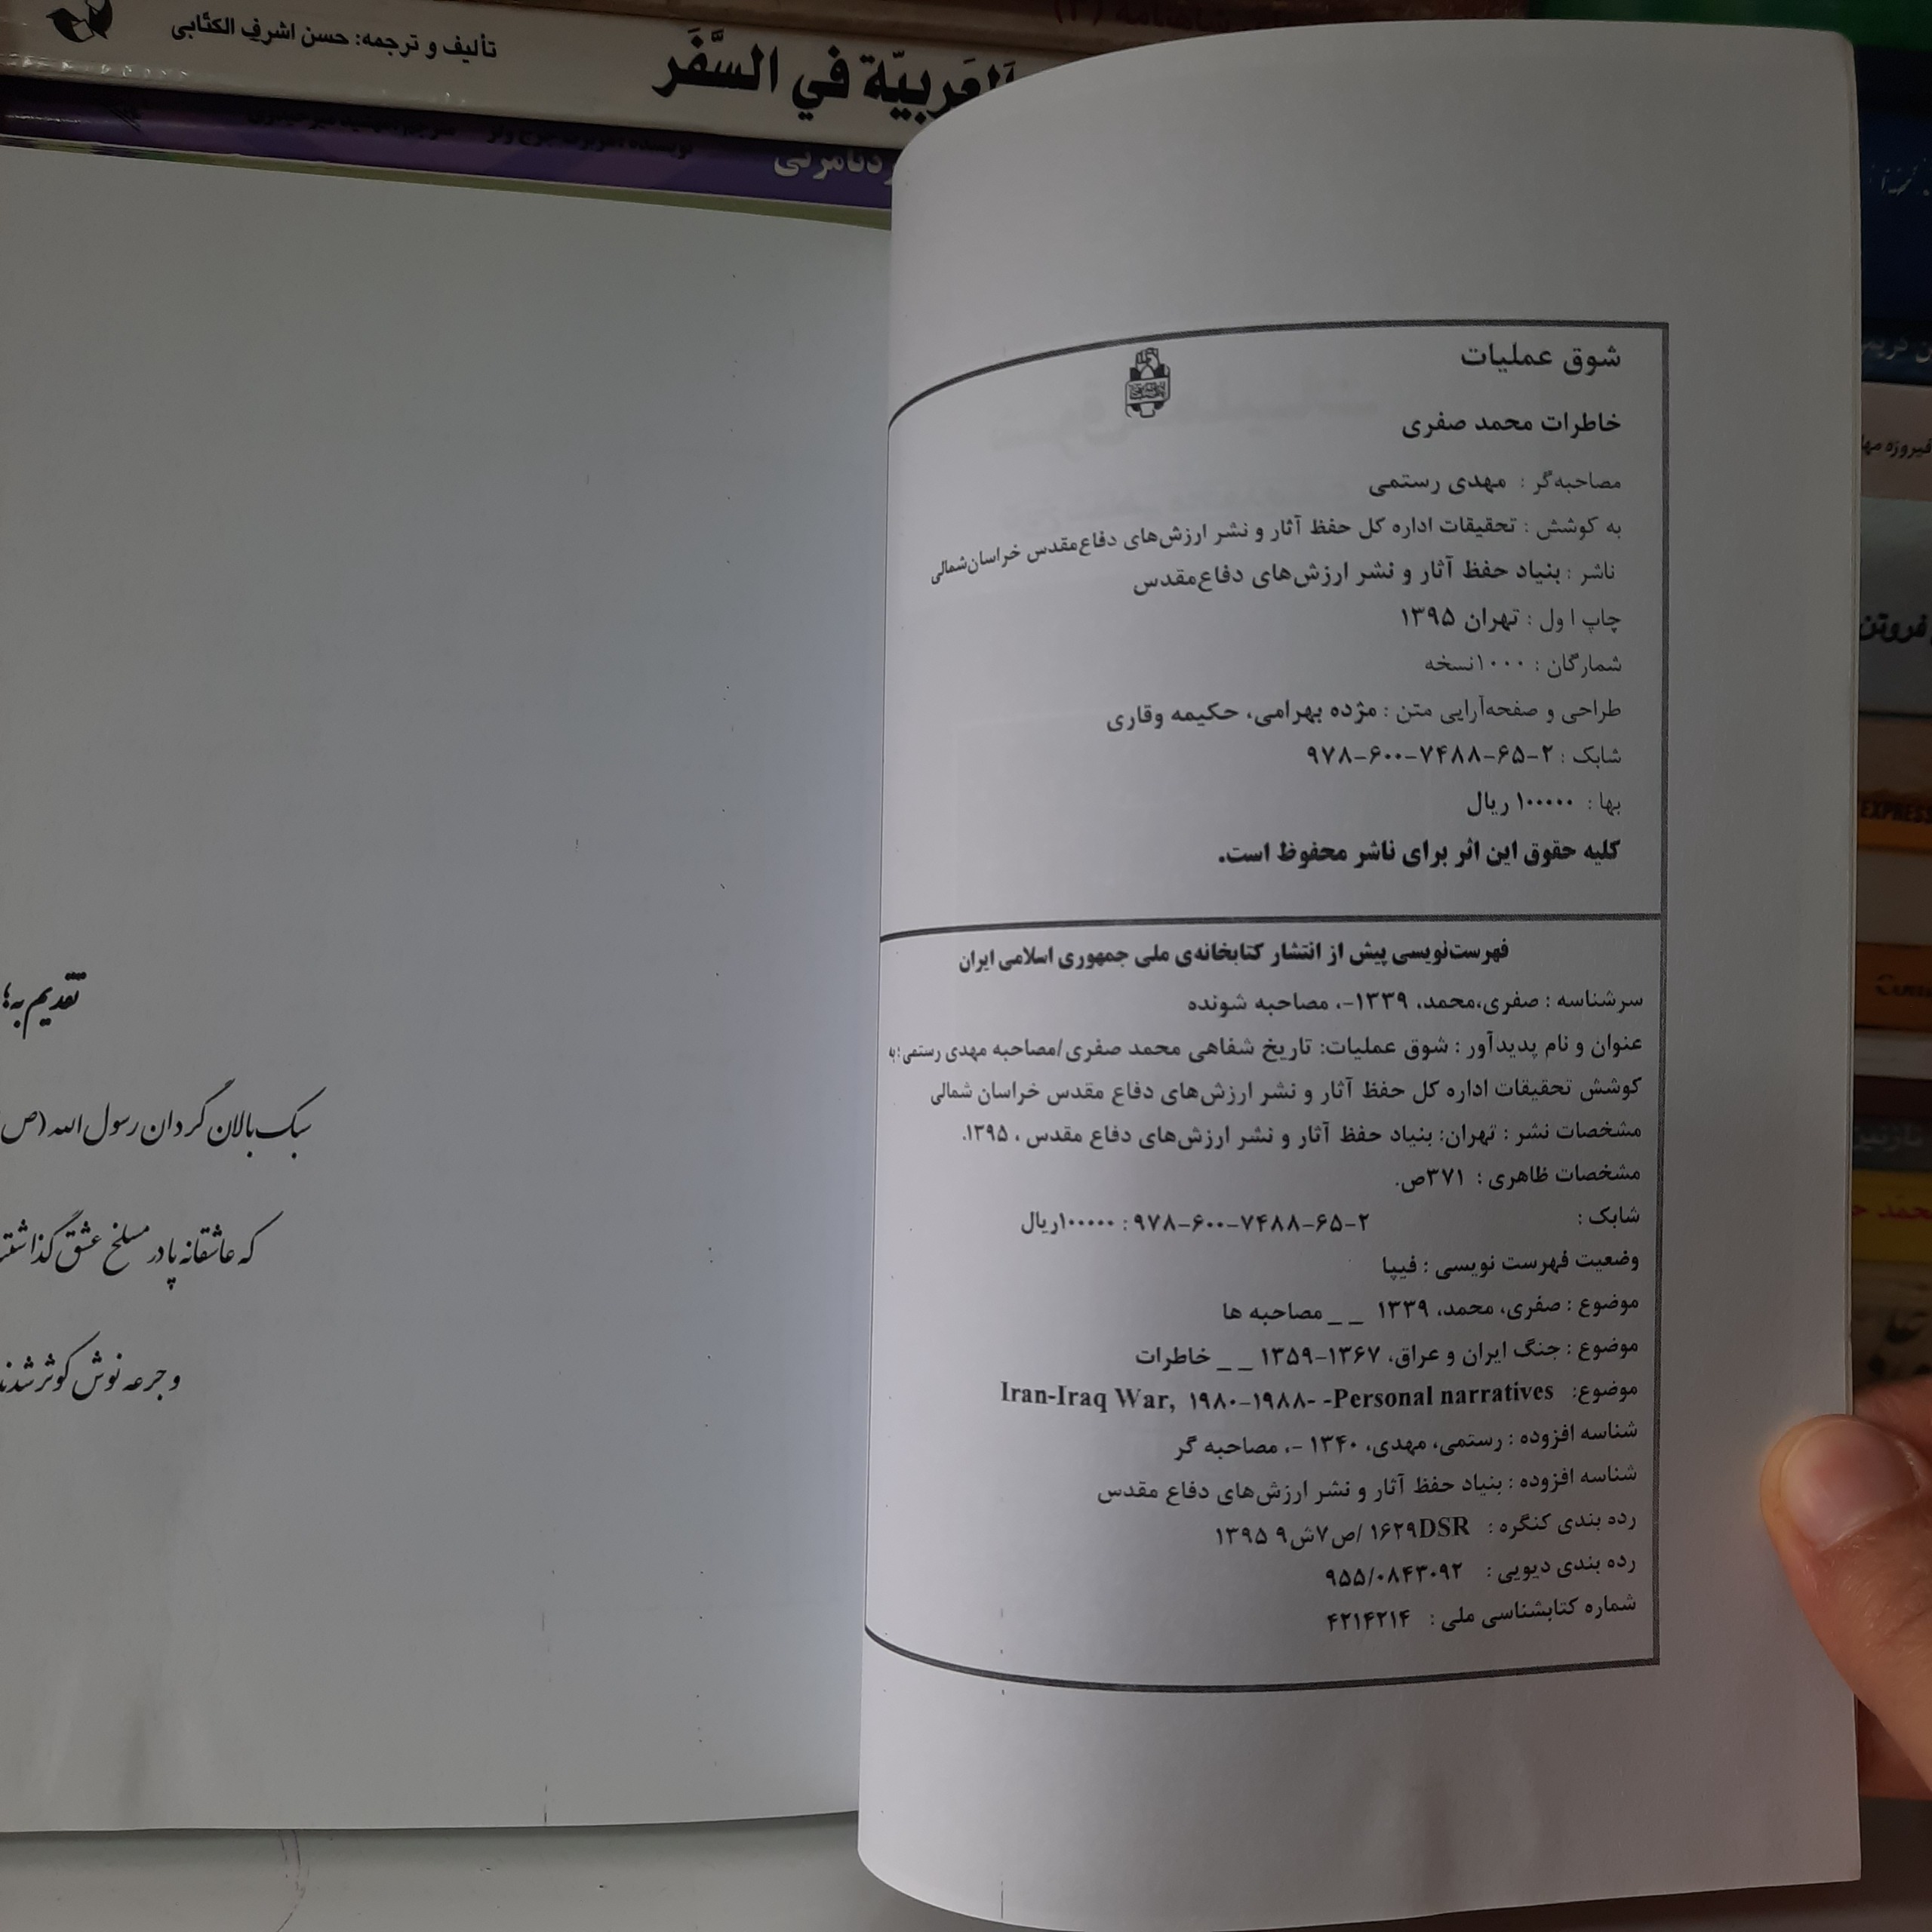 تألیف و ترجمه: حسن اشرف الکتابی
العَرَبیّة في السَّفَر
شوق عملیات
خاطرات محمد صفری
مصاحبه‌گر : مهدی رستمی
به کوشش : تحقیقات اداره کل حفظ آثار و نشر ارزش‌های دفاع‌مقدس خراسان‌شمالی
ناشر : بنیاد حفظ آثار و نشر ارزش‌های دفاع‌مقدس
چاپ اول : تهران ۱۳۹۵
شمارگان : ۱۰۰۰نسخه
طراحی و صفحه‌آرایی متن : مژده بهرامی، حکیمه وقاری
شابک : ۲-۶۵-۷۴۸۸-۶۰۰-۹۷۸
بها : ۱۰۰۰۰۰ ریال
کلیه حقوق این اثر برای ناشر محفوظ است.
فهرست‌نویسی پیش از انتشار کتابخانه‌ی ملی جمهوری اسلامی ایران
سرشناسه : صفری،محمد، ۱۳۳۹-، مصاحبه شونده
عنوان و نام پدیدآور : شوق عملیات: تاریخ شفاهی محمد صفری/مصاحبه مهدی رستمی؛به
کوشش تحقیقات اداره کل حفظ آثار و نشر ارزش‌های دفاع مقدس خراسان شمالی
مشخصات نشر : تهران: بنیاد حفظ آثار و نشر ارزش‌های دفاع مقدس ، ۱۳۹۵.
مشخصات ظاهری : ۳۷۱ص.
شابک : ۲-۶۵-۷۴۸۸-۶۰۰-۹۷۸ : ۱۰۰۰۰۰ریال
وضعیت فهرست نویسی : فیپا
موضوع : صفری، محمد، ۱۳۳۹ _ _ مصاحبه ها
موضوع : جنگ ایران و عراق، ۱۳۶۷-۱۳۵۹ _ _ خاطرات
موضوع: Iran-Iraq War, ۱۹۸۰-۱۹۸۸- -Personal narratives
شناسه افزوده : رستمی، مهدی، ۱۳۴۰ -، مصاحبه گر
شناسه افزوده : بنیاد حفظ آثار و نشر ارزش‌های دفاع مقدس
رده بندی کنگره : ۱۶۲۹DSR /ص۷ش۹ ۱۳۹۵
رده بندی دیویی : ۹۵۵/۰۸۴۳۰۹۲
شماره کتابشناسی ملی : ۴۲۱۴۲۱۴
تقدیم به؛
سبک بالان گردان رسول الله (ص
که عاشقانه پا در مسلخ عشق گذاشتند
و جرعه نوش کوثر شدند